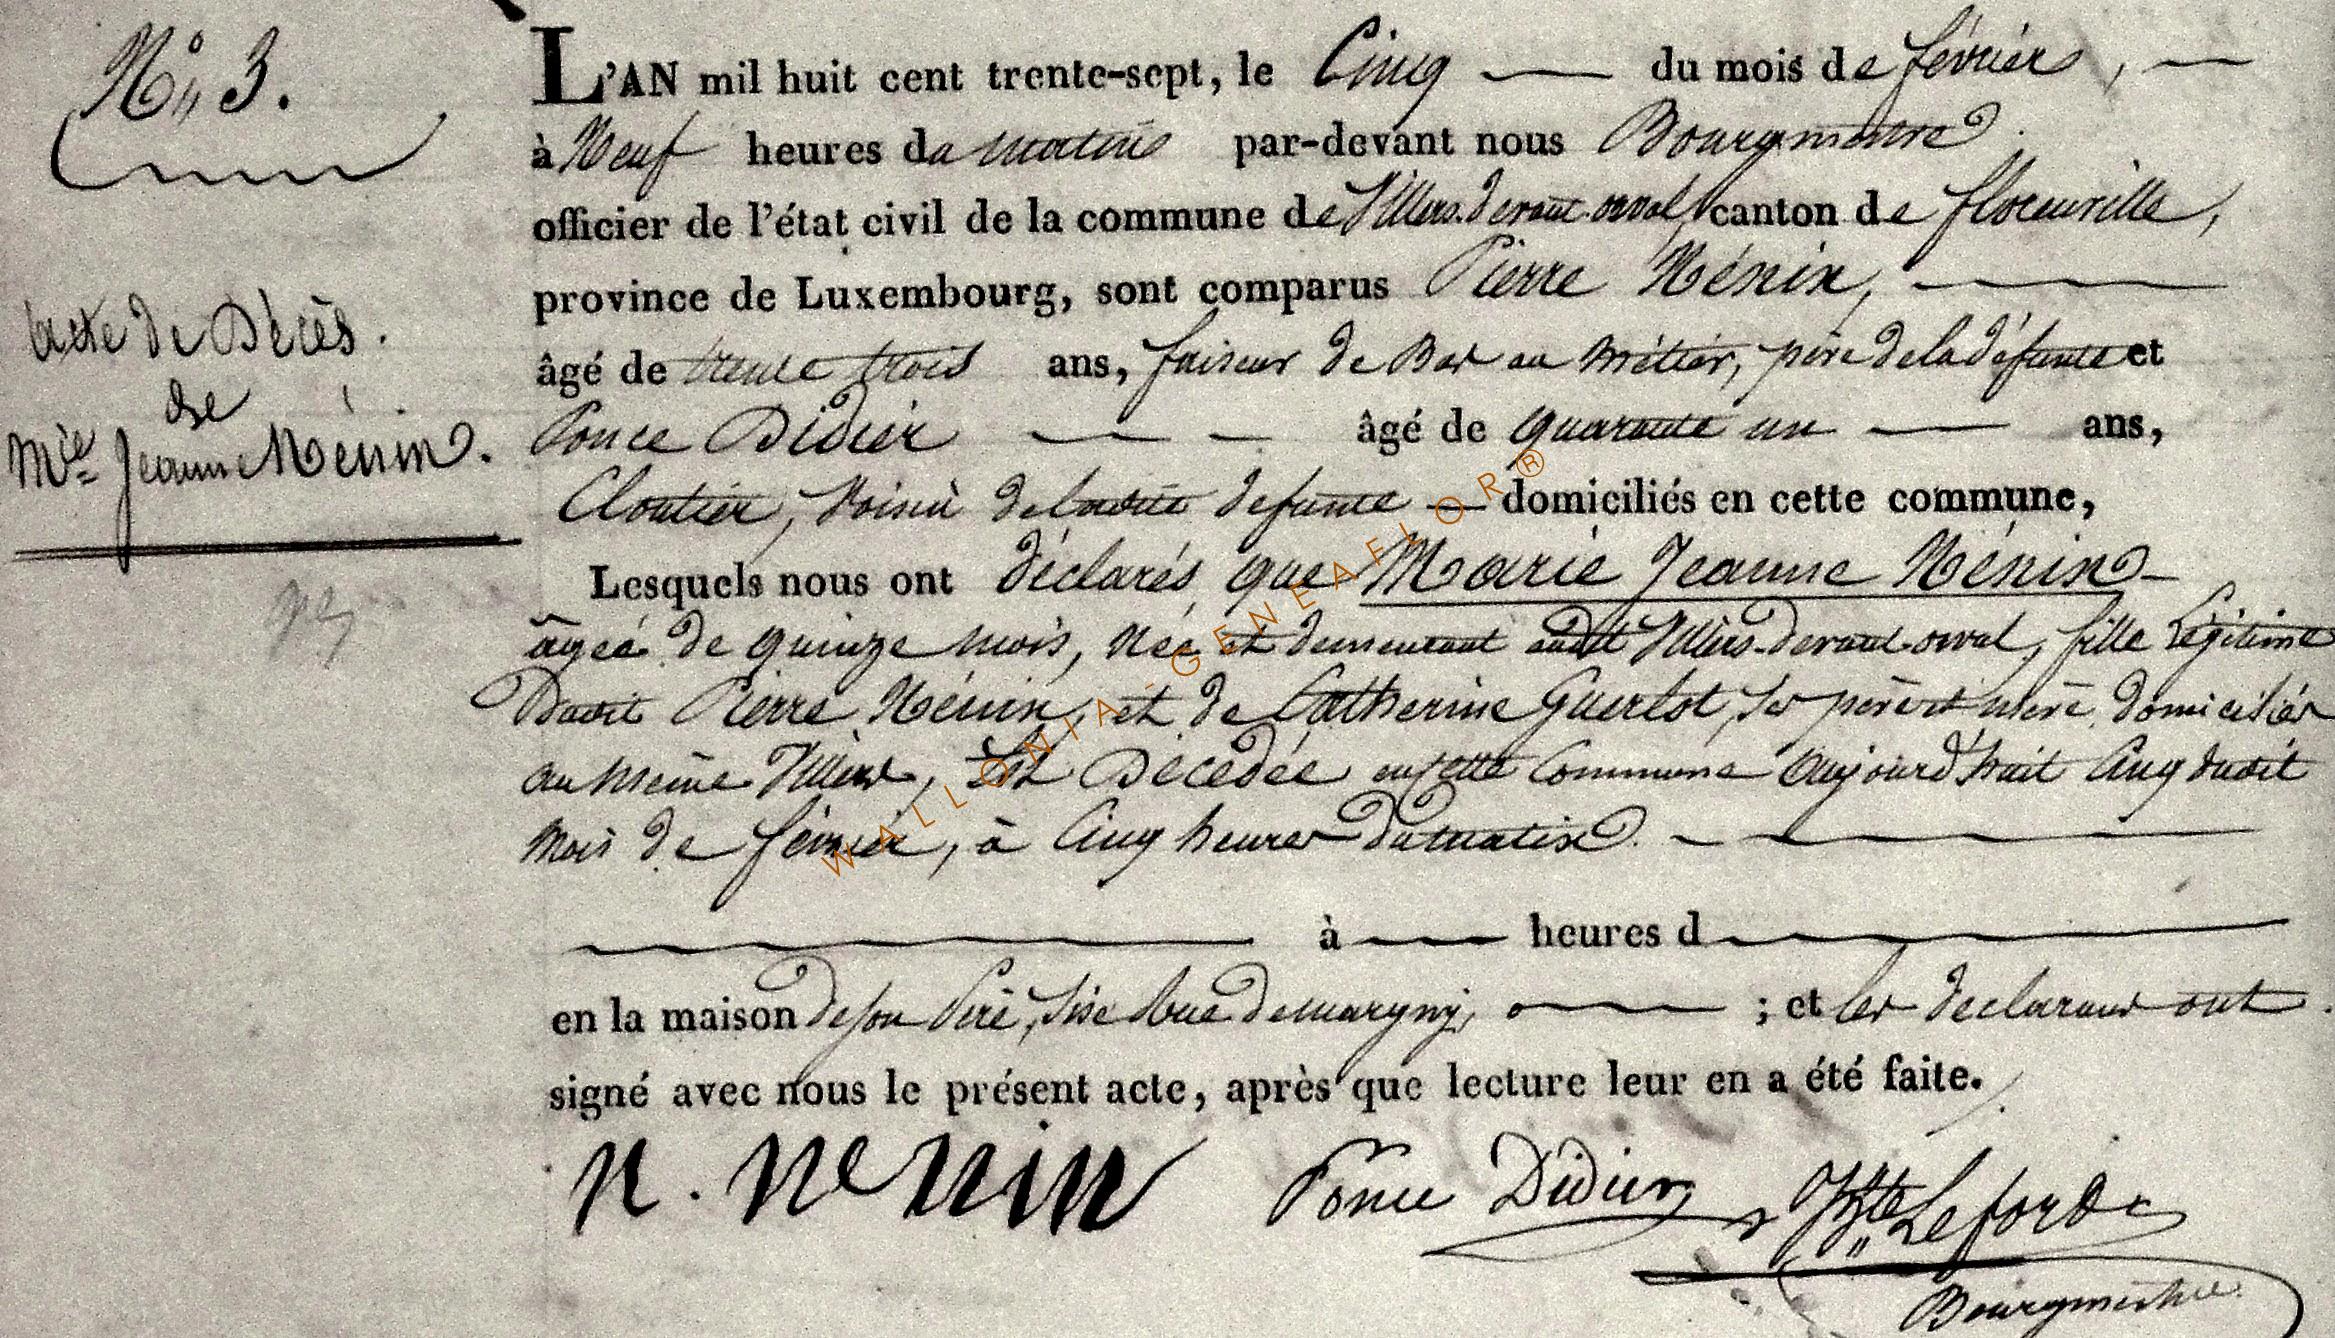 N° 3.
Acte de Décès.
de
Mie Jeanne Nénin.
L'AN mil huit cent trente-sept, le Cinq du mois de février,
à Neuf heures du matin par-devant nous Bourgmestre
officier de l'état civil de la commune de Villers-devant-orval, canton de florenville,
province de Luxembourg, sont comparus Pierre Nénin,
âgé de trente trois ans, faiseur de Bas au métier, père de la défunte et
Ponce Didier âgé de quarante un ans,
Cloutier, Voisin de ladite defunte domiciliés en cette commune,
Lesquels nous ont déclarés que Marie Jeanne Nénin
âgée de quinze mois, née et demeurant audit Villers-devant-orval, fille Légitime
Dudit Pierre Nénin, et de Catherine Guerlot, ses père et mère domiciliés
au même Villers, Est Décédée en cette Commune Aujourd'huit Cinq dudit
mois de février, à Cinq heures du matin.
à heures d
en la maison de son Père, sise Rue de margny, ; et les declarans ont
signé avec nous le présent acte, après que lecture leur en a été faite.
n. nenin Ponce Didier Leforde
Bourgmestre
WALLONIA-GENEAFLOR®